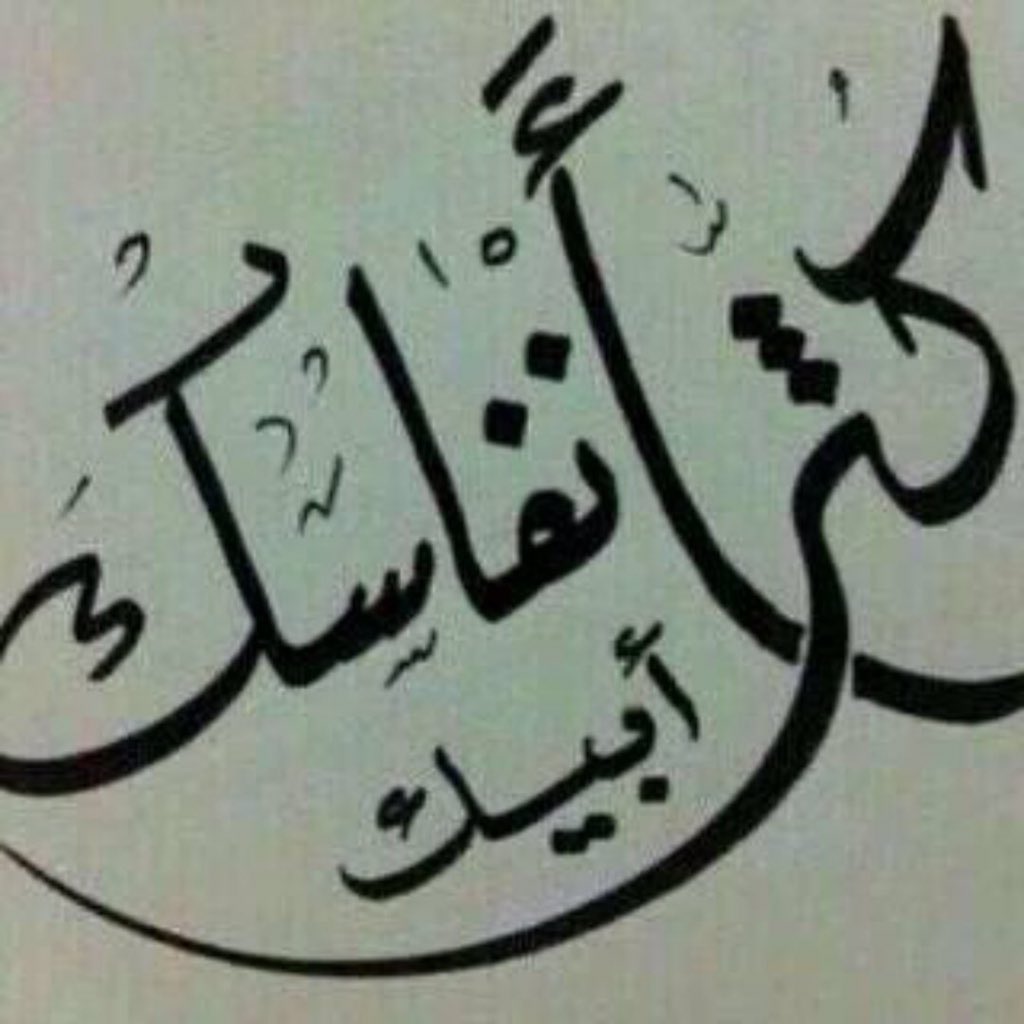 كثر أنفاسك
أبيك